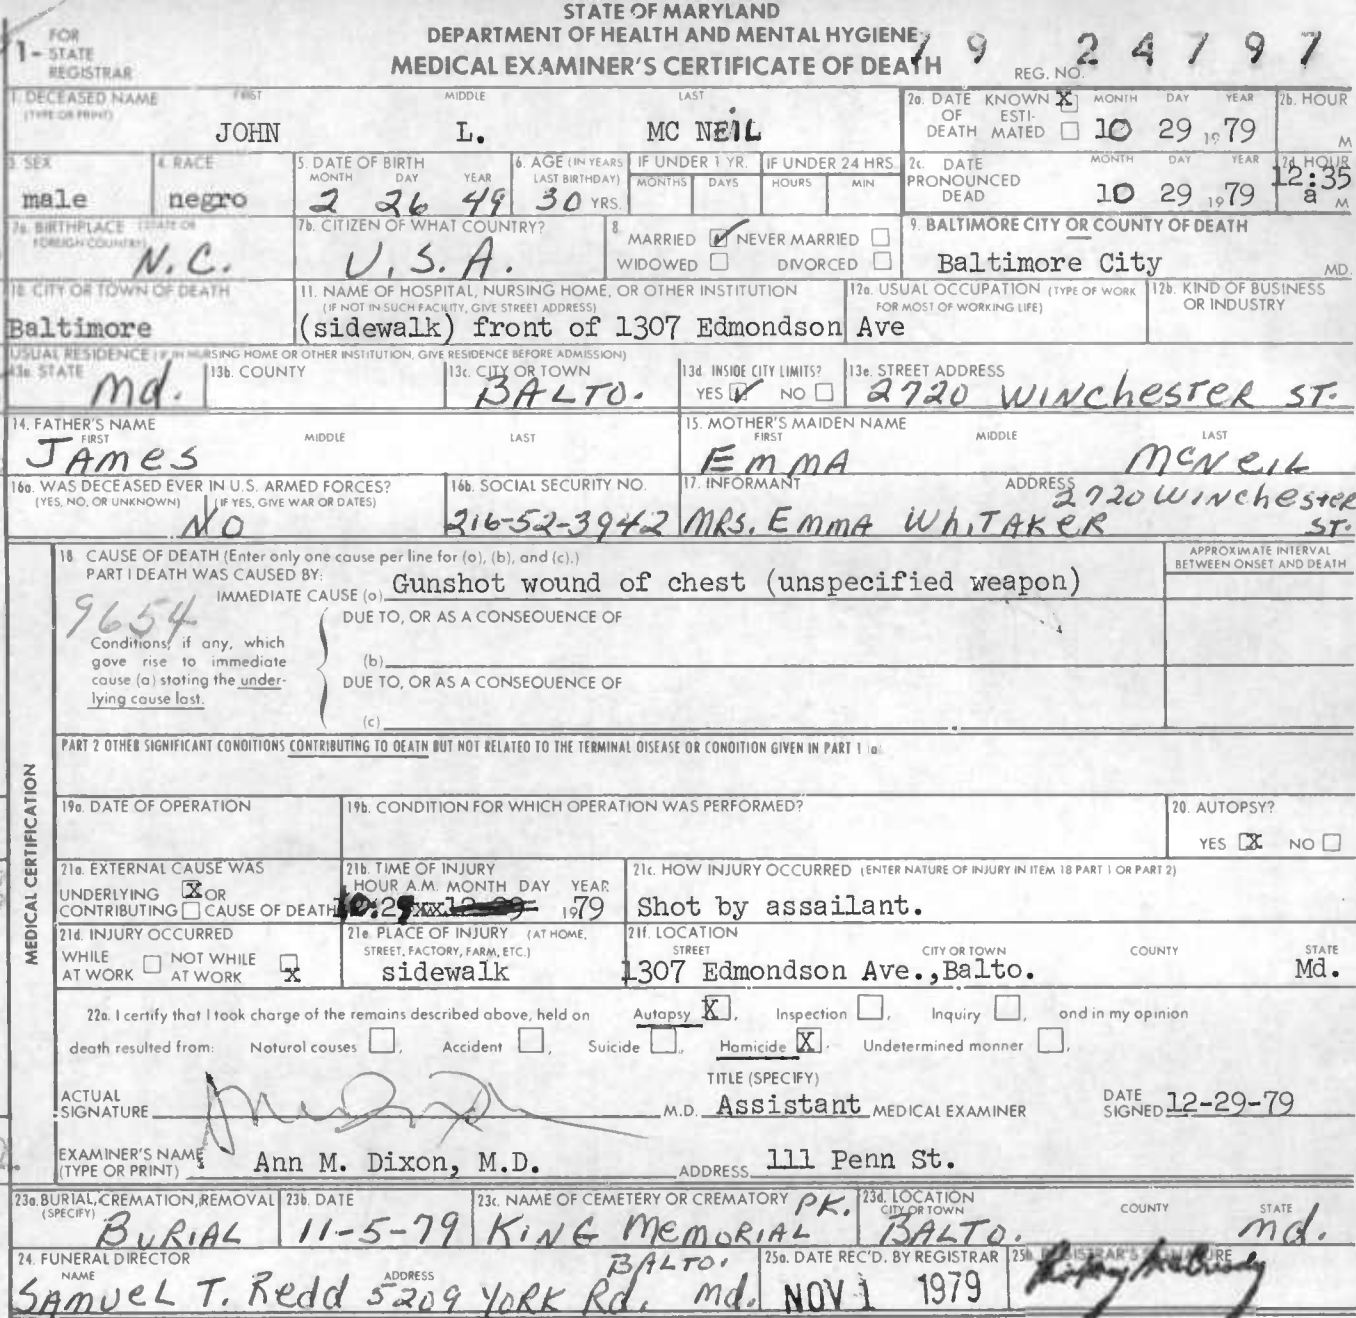 STATE OF MARYLAND
DEPARTMENT OF HEALTH AND MENTAL HYGIENE
MEDICAL EXAMINER'S CERTIFICATE OF DEATH
1- FOR STATE REGISTRAR
REG. NO. 79 24797
1. DECEASED NAME (TYPE OR PRINT) FIRST MIDDLE LAST
JOHN L. MC NEIL
2a. DATE OF DEATH KNOWN X ESTIMATED MONTH DAY YEAR 10 29 1979
2b. HOUR M
3. SEX male
4. RACE negro
5. DATE OF BIRTH MONTH DAY YEAR 2 26 49
6. AGE (IN YEARS LAST BIRTHDAY) 30 YRS.
IF UNDER 1 YR. MONTHS DAYS
IF UNDER 24 HRS. HOURS MIN
2c. DATE PRONOUNCED DEAD MONTH DAY YEAR 10 29 1979
2d. HOUR 12:35 a M
7a. BIRTHPLACE (STATE OR FOREIGN COUNTRY) N.C.
7b. CITIZEN OF WHAT COUNTRY? U.S.A.
8. MARRIED ✓ NEVER MARRIED WIDOWED DIVORCED
9. BALTIMORE CITY OR COUNTY OF DEATH Baltimore City MD.
10. CITY OR TOWN OF DEATH Baltimore
11. NAME OF HOSPITAL, NURSING HOME, OR OTHER INSTITUTION (IF NOT IN SUCH FACILITY, GIVE STREET ADDRESS)
(sidewalk) front of 1307 Edmondson Ave
12a. USUAL OCCUPATION (TYPE OF WORK FOR MOST OF WORKING LIFE)
12b. KIND OF BUSINESS OR INDUSTRY
USUAL RESIDENCE (IF IN NURSING HOME OR OTHER INSTITUTION, GIVE RESIDENCE BEFORE ADMISSION)
13a. STATE Md.
13b. COUNTY
13c. CITY OR TOWN BALTO.
13d. INSIDE CITY LIMITS? YES ✓ NO
13e. STREET ADDRESS 2720 WINchesTeR ST.
14. FATHER'S NAME FIRST MIDDLE LAST
JAmes
15. MOTHER'S MAIDEN NAME FIRST MIDDLE LAST
EmmA McNeiL
16a. WAS DECEASED EVER IN U.S. ARMED FORCES? (YES, NO, OR UNKNOWN) (IF YES, GIVE WAR OR DATES)
NO
16b. SOCIAL SECURITY NO. 216-52-3942
17. INFORMANT ADDRESS
MRS. EmmA WhiTAKeR 2720 WINchesTeR ST.
18. CAUSE OF DEATH (Enter only one cause per line for (a), (b), and (c).)
PART I DEATH WAS CAUSED BY:
IMMEDIATE CAUSE (a) Gunshot wound of chest (unspecified weapon)
APPROXIMATE INTERVAL BETWEEN ONSET AND DEATH
9654
DUE TO, OR AS A CONSEQUENCE OF
Conditions, if any, which gave rise to immediate cause (a) stating the underlying cause last.
(b)
DUE TO, OR AS A CONSEQUENCE OF
(c)
PART 2 OTHER SIGNIFICANT CONDITIONS CONTRIBUTING TO DEATH BUT NOT RELATED TO THE TERMINAL DISEASE OR CONDITION GIVEN IN PART 1 (a)
MEDICAL CERTIFICATION
19a. DATE OF OPERATION
19b. CONDITION FOR WHICH OPERATION WAS PERFORMED?
20. AUTOPSY? YES X NO
21a. EXTERNAL CAUSE WAS
UNDERLYING X OR
CONTRIBUTING CAUSE OF DEATH
21b. TIME OF INJURY
HOUR A.M. MONTH DAY YEAR
1979
21c. HOW INJURY OCCURRED (ENTER NATURE OF INJURY IN ITEM 18 PART 1 OR PART 2)
Shot by assailant.
21d. INJURY OCCURRED
WHILE AT WORK NOT WHILE AT WORK X
21e. PLACE OF INJURY (AT HOME, STREET, FACTORY, FARM, ETC.)
sidewalk
21f. LOCATION STREET CITY OR TOWN COUNTY STATE
1307 Edmondson Ave., Balto. Md.
22a. I certify that I took charge of the remains described above, held on Autopsy X, Inspection, Inquiry, and in my opinion
death resulted from: Natural causes, Accident, Suicide, Homicide X. Undetermined manner,
ACTUAL SIGNATURE M.D.
TITLE (SPECIFY) Assistant MEDICAL EXAMINER
DATE SIGNED 12-29-79
EXAMINER'S NAME (TYPE OR PRINT) Ann M. Dixon, M.D.
ADDRESS 111 Penn St.
23a. BURIAL, CREMATION, REMOVAL (SPECIFY) BURIAL
23b. DATE 11-5-79
23c. NAME OF CEMETERY OR CREMATORY KING MemoRIAL PK.
23d. LOCATION CITY OR TOWN COUNTY STATE
BALTO. md.
24. FUNERAL DIRECTOR
NAME ADDRESS
SAmueL T. Redd 5209 YORK Rd. BALTO. md.
25a. DATE REC'D. BY REGISTRAR NOV 1 1979
25b. REGISTRAR'S SIGNATURE